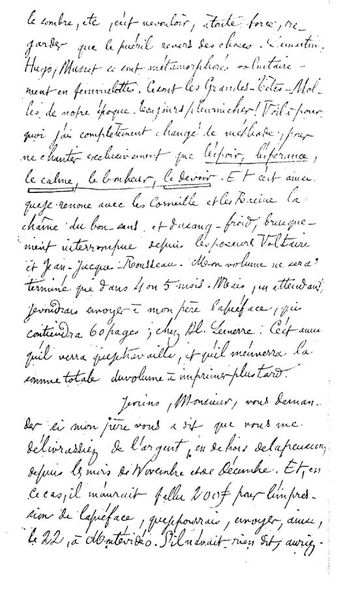 le sombre, etc, c'est ne vouloir, à toute force, re-
garder que le puéril revers des choses. Lamartine,
Hugo, Musset se sont métamorphosés volontaire-
ment en femmelettes. Ce sont les Grandes-Têtes-Mol-
les de notre époque. Toujours pleurnicher! Voilà pour
quoi j'ai complètement changé de méthode, pour
ne chanter exclusivement que l'espoir, l'espérance,
le calme, le bonheur, le devoir. Et c'est ainsi
que je renoue avec les Corneille et les Racine la
chaîne du bon-sens et du sang-froid, brusque-
ment interrompue depuis les poseurs Voltaire
et Jean-Jacques-Rousseau. Mon volume ne sera
terminé que dans 4 ou 5 mois. Mais, en attendant,
je voudrais envoyer à mon père la préface, qui
contiendra 60 pages; chez Al. Lemerre. C'est ainsi
qu'il verra que je travaille, et qu'il m'enverra la
somme totale du volume à imprimer plus tard.
Je viens, Monsieur, vous deman-
der si mon père vous a dit que vous me
délivrassiez de l'argent, en dehors de la pension,
depuis les mois de Novembre et de Décembre. Et, en
ce cas, il m'aurait fallu 200 f. pour l'impres-
sion de la préface, que je pourrais, envoyer, ainsi,
le 22, à Montévidéo. S'il n'avait rien dit, auriez-